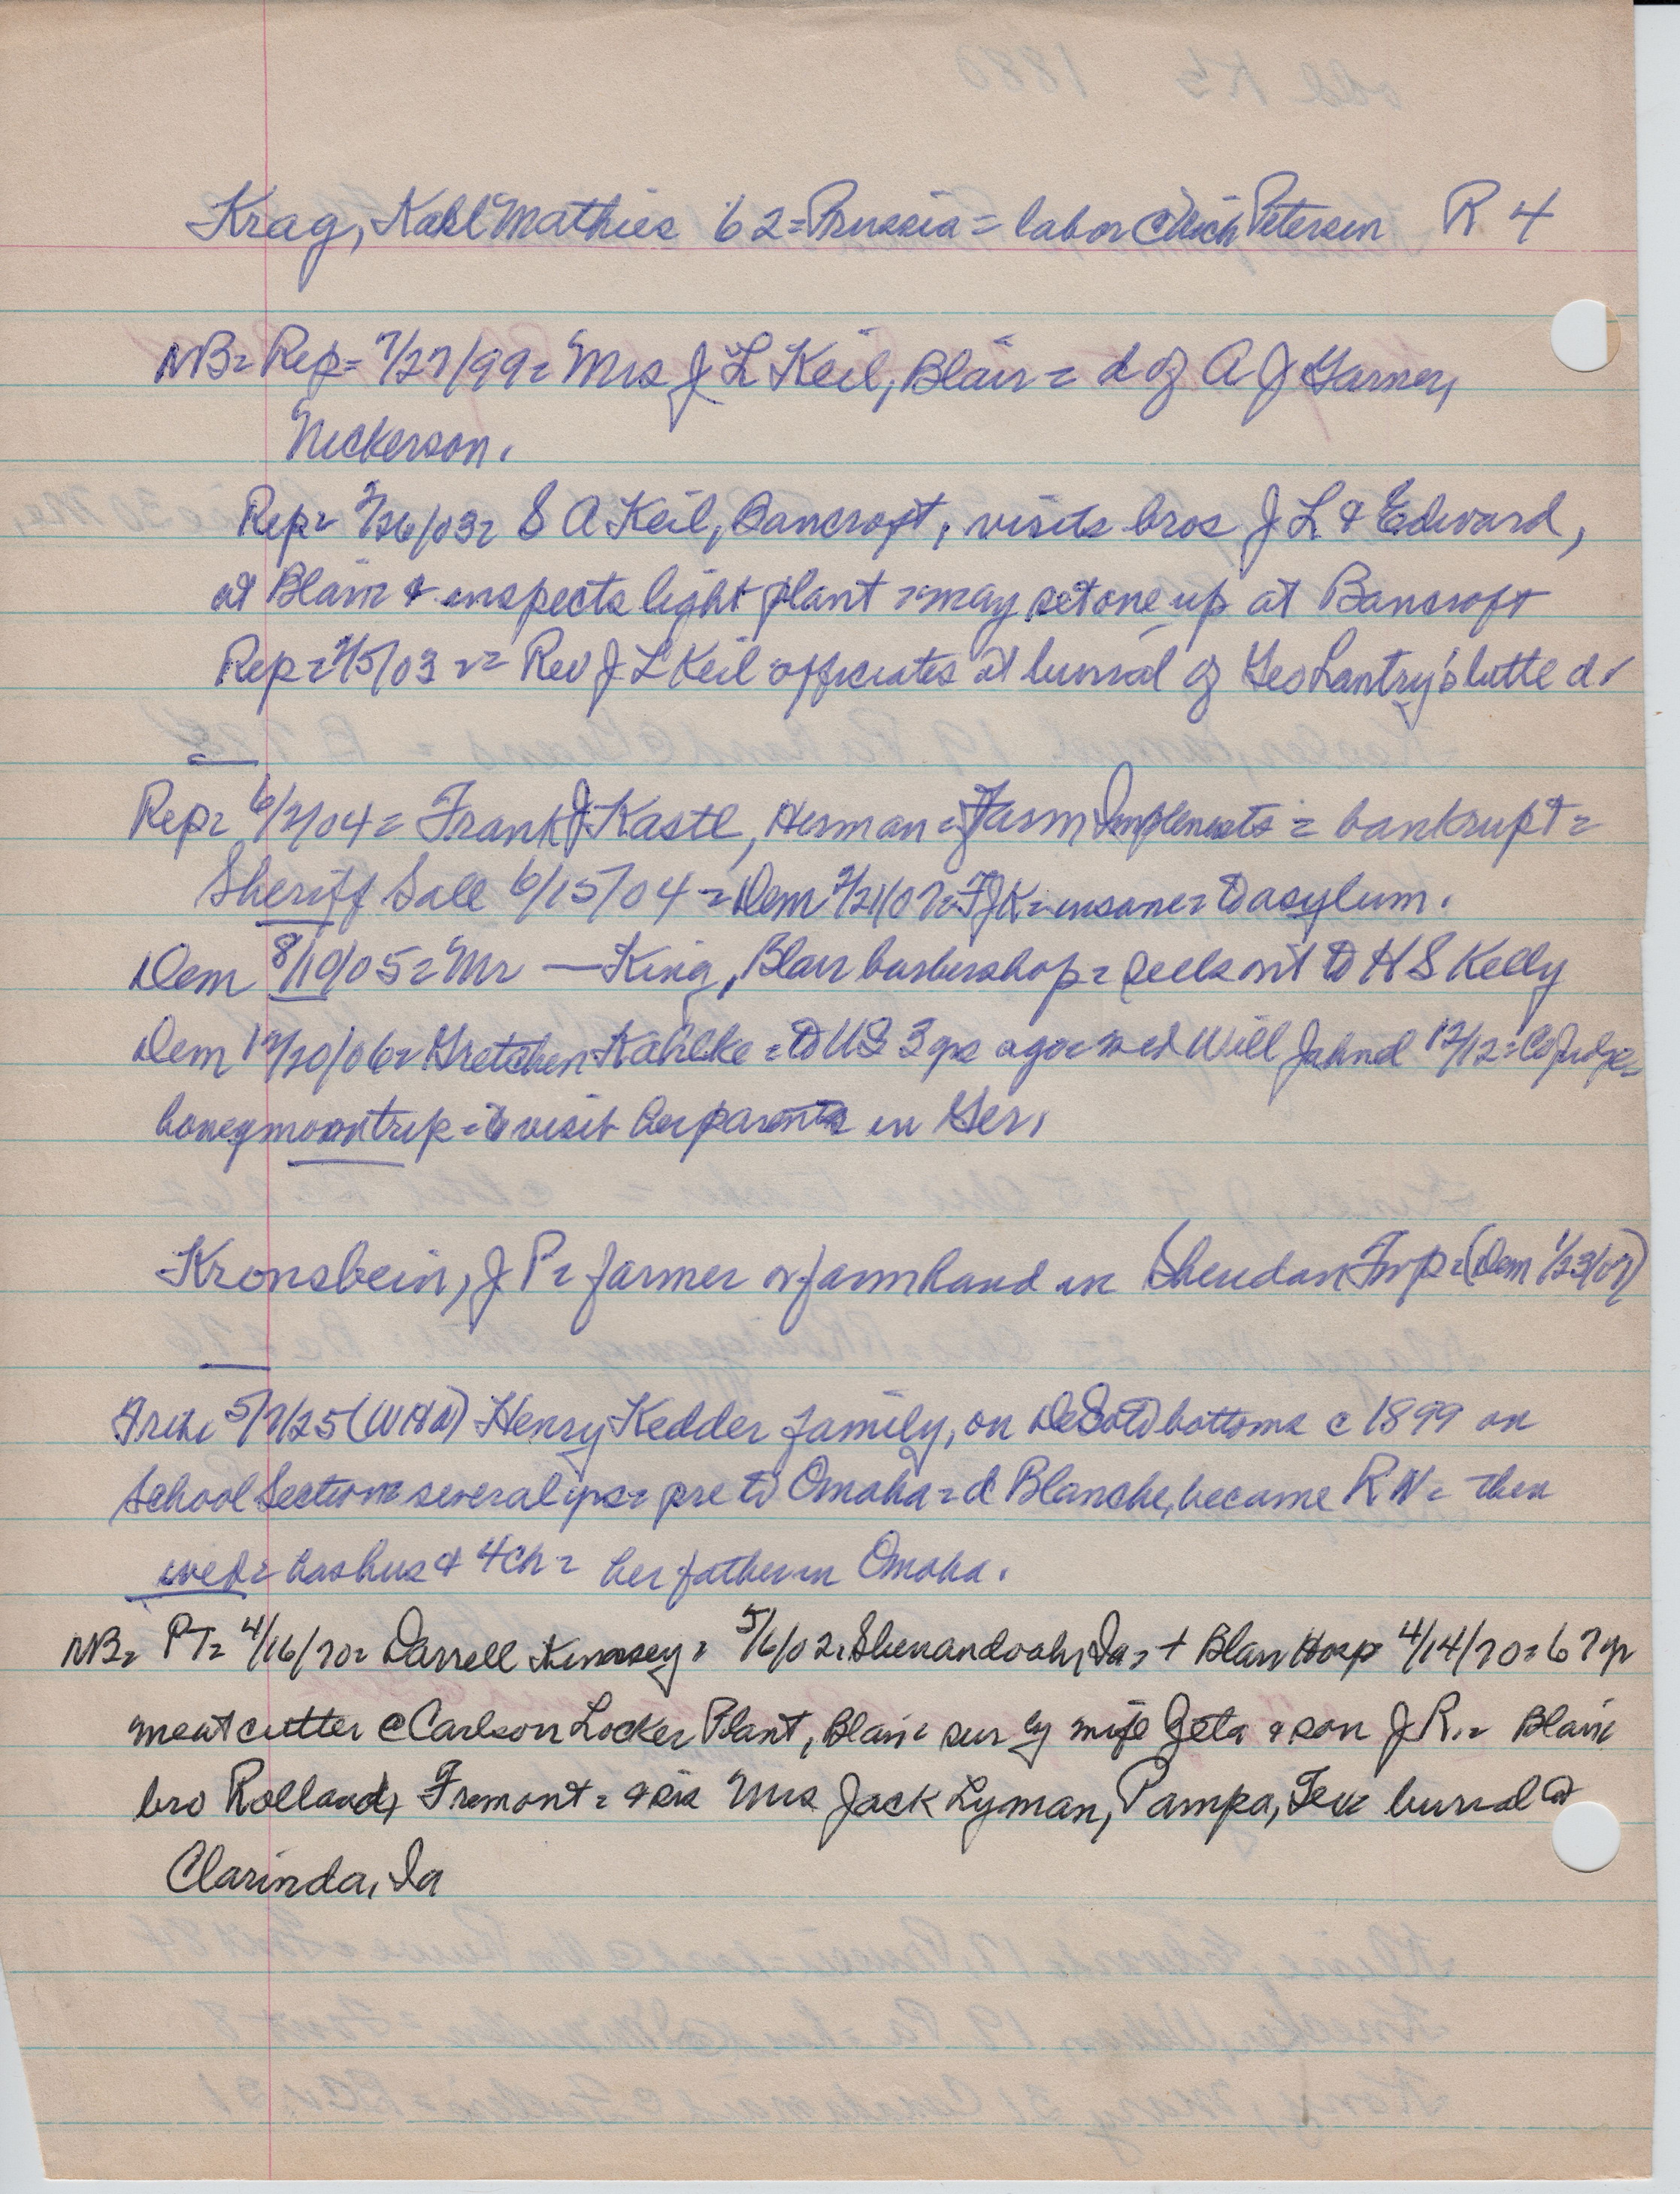 Krag, Karl Mathies 62 = Prussia = labor @ Rich Petersen R 4
NB = Rep = 7/27/99 = Mrs J L Keil, Blair = d of A J Garner,
Nickerson.
Rep = /26/03 = S A Keil, Bancroft, visits bros J L & Edward,
at Blair & inspects light plant = may set one up at Bancroft
Rep = /5/03 = Rev J L Keil officiates at burial of Geo Lantry's little d.
Rep = 6/7/04 = Frank J Kastl, Herman = Farm Implements = bankrupt =
Sheriff Sale 6/15/04 = Dem /21/07 = FJK = insane = to asylum.
Dem 8/10/05 = Mr — King, Blair barbershop = sells int to H S Kelly
Dem 12/20/06 = Gretchen Kahlke = to US 3 yrs ago = wed Will Jahnel 12/12 = Co Judge =
honeymoon trip = to visit her parents in Ger.
Kronsbein, J P = farmer or farmhand in Sheridan Twp = (Dem 1/23/07)
Trib = 5/7/25 (WHW) Henry Kedder family, on DeSoto bottoms c 1899 on
School Section several yrs = pre to Omaha = d Blanche, became R N = then
wed = has hus & 4 ch = her father in Omaha.
NB = PT = 4/16/70 = Darrell Kinnsey = 5/6/02, Shenandoah, Ia = + Blair Hosp 4/14/70 = 67 yr
meatcutter @ Carlson Locker Plant, Blair = sur by wife Zeta & son J R. = Blair
bro Rolland, Fremont = & sis Mrs Jack Lyman, Pampa, Tex burial @
Clarinda, Ia